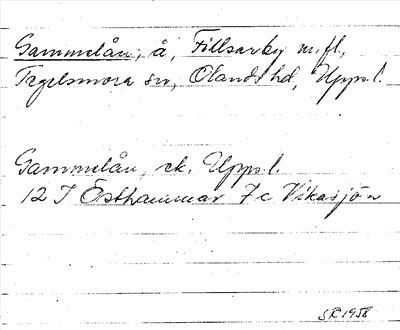 Gammelån, å, Fillsarby m.fl.,
Tegelsmora sn, Olands hd, Upps.l.
Gammelån, ek. Upps.l.
12 I Östhammar 7c Vikasjön
SR 1958